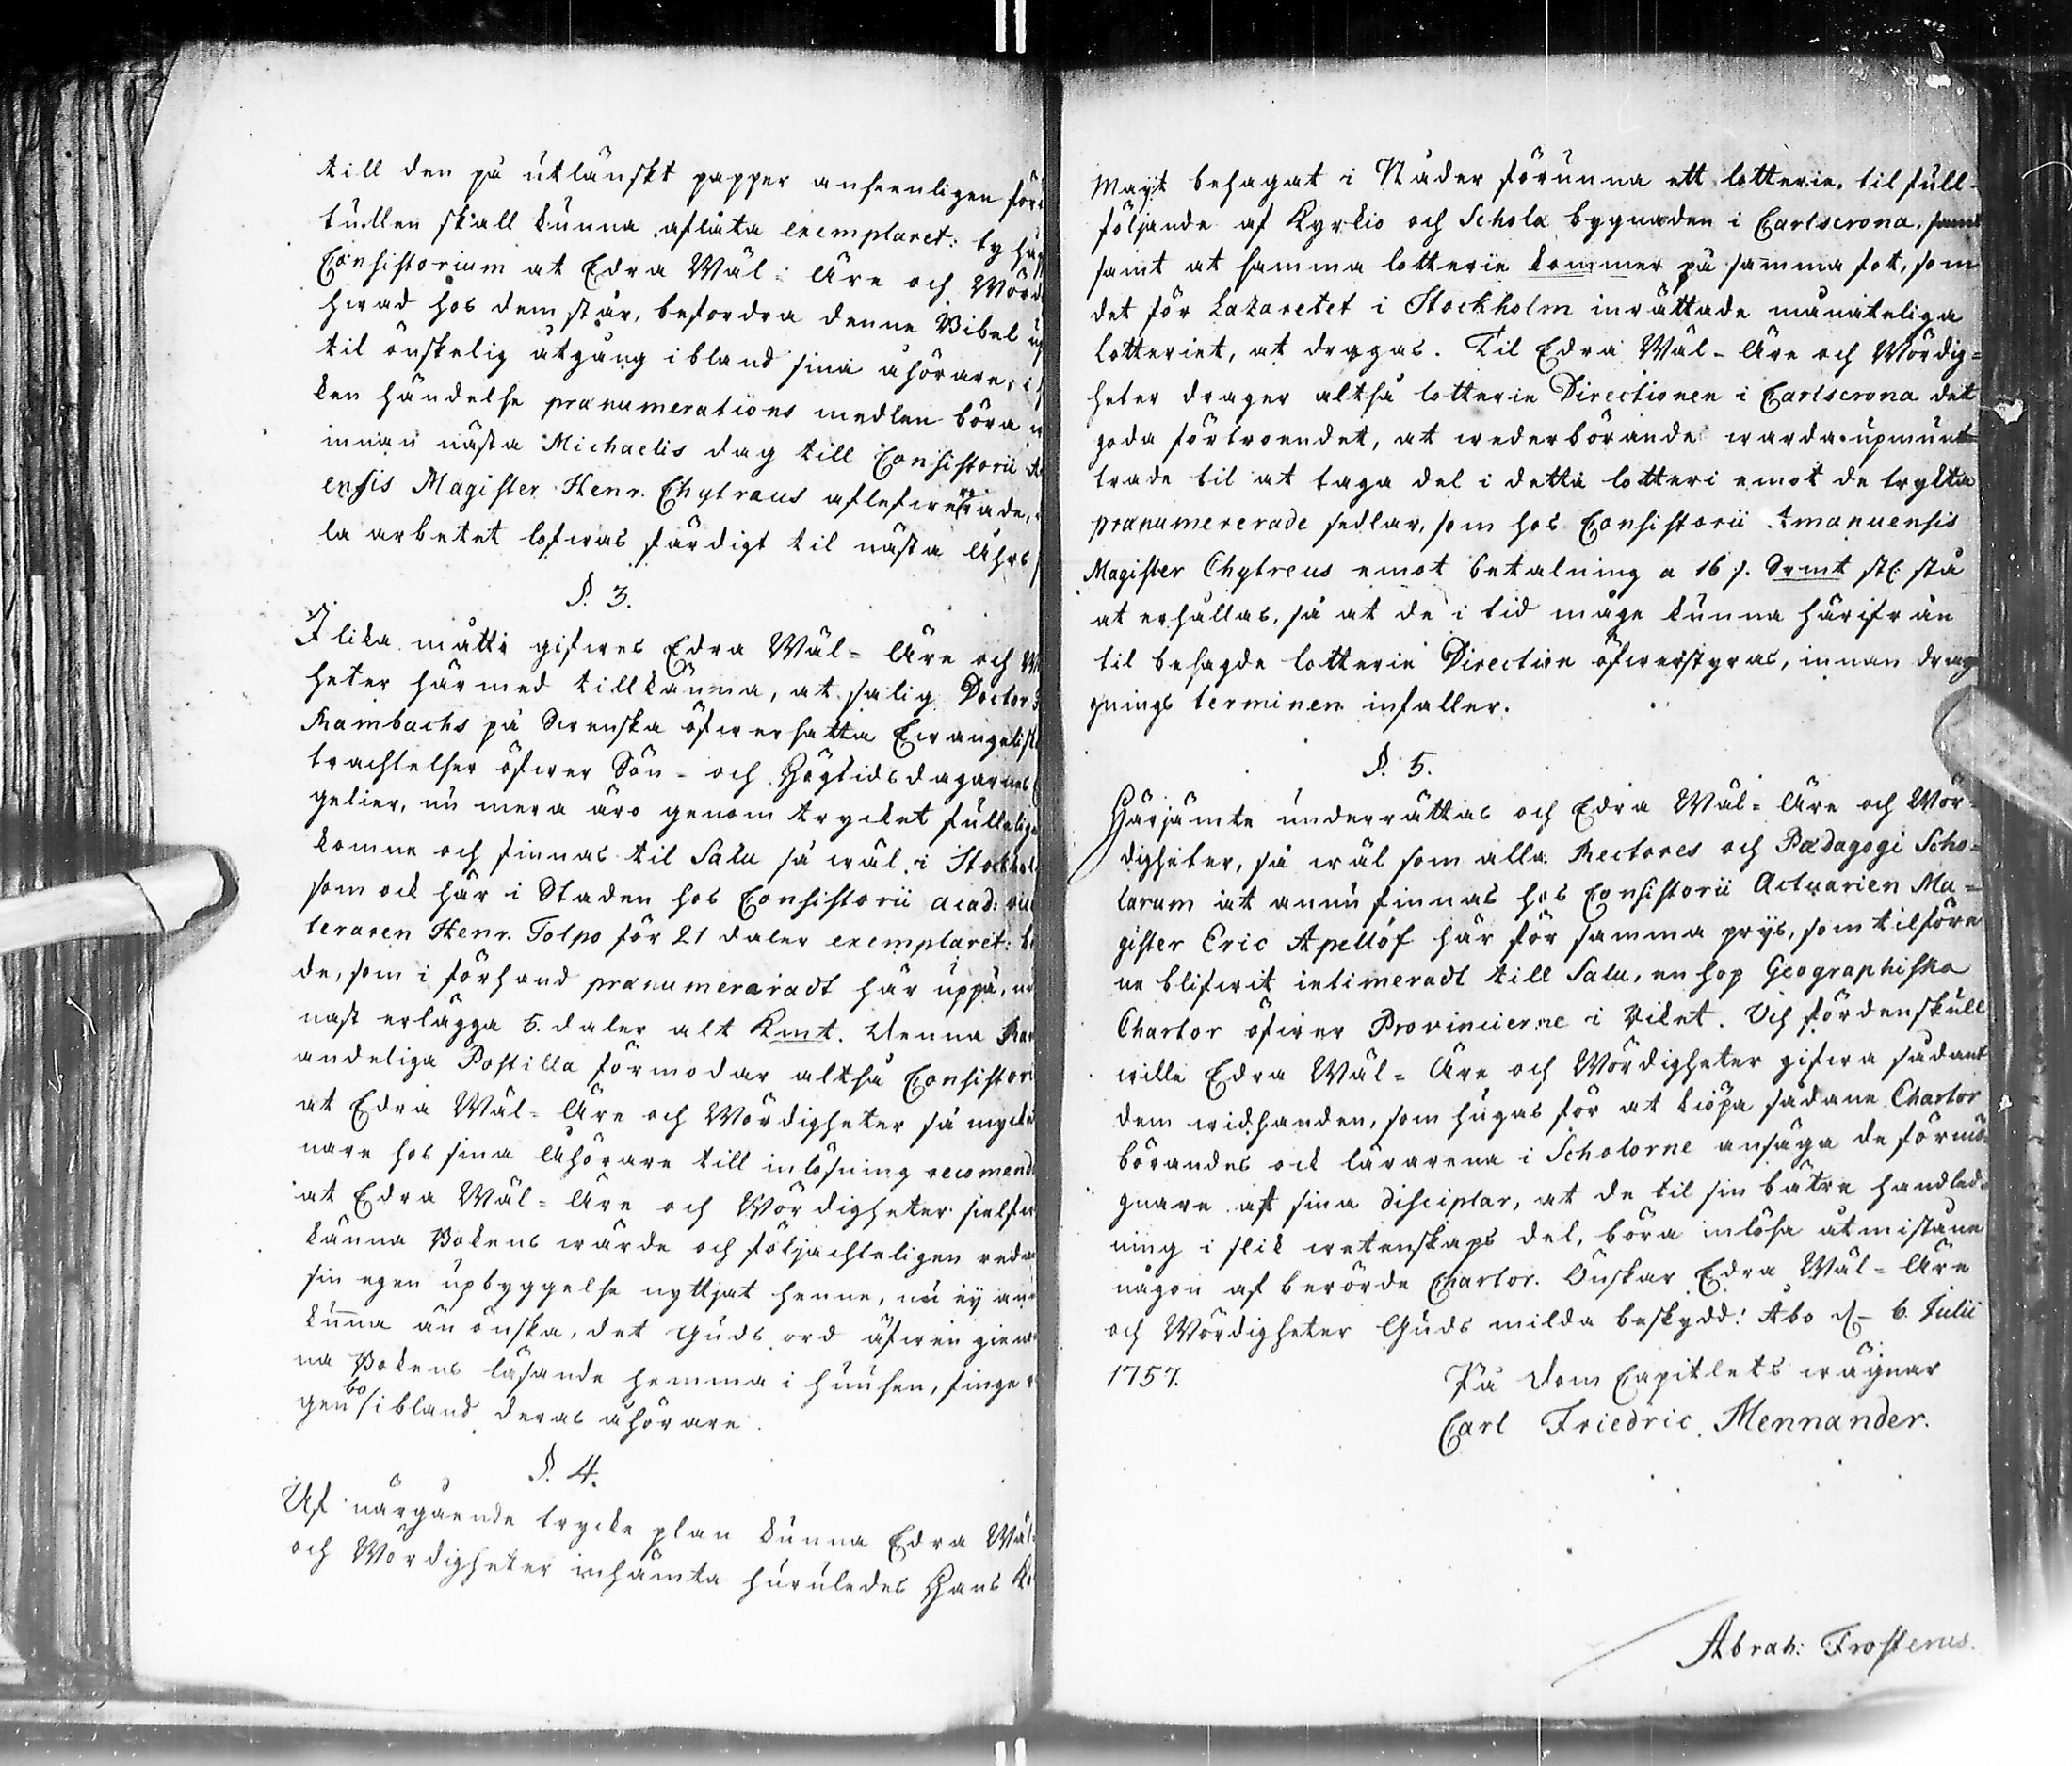 till den på utlänskt papper ansenligen för
tullen skall kunna aflåta exemplaret: ty
Consistorium at Edra Wäl- Äre och Wörd
hwad hos dem står, befordra denne Bibel
til önskelig åtgång ibland sina åhörare; i
ken händelse prænumerations medlen böra
innan nästa Michaelis dag till Consistorii
ensis Magister Henr. Chytræus aflefwererade,
la arbetet lofwas färdigt til nästa Åhrs
§. 3.
I lika måtto gifwes Edra Wäl- Äre och W
heter härmed tillkänna, at salig Doctor
Rambachs på Swenska öfwersatta Ewangelist
trachtelser öfwer Sön- och Högtidsdagarnes
gelier, nu mera äro genom trycket fulleliga
komne och finnas til Salu så wäl i Stockhol
som ock här i Staden hos Consistorii acad:
teraren Henr. Tolpo för 21 daler exemplaret:
de, som i förhand prænumereradt här uppå,
nast erlägga 5. daler alt Kmt. Denna Ram
andeliga Postilla förmodar altså Consistor
at Edra Wäl- Äre och Wördigheter så mycket
nare hos sina Åhörare till inlösning recomend
at Edra Wäl- Äre och Wördigheter sielfwe
känna Bokens wärde och följachteligen redan
sin egen upbyggelse nyttjat henne, nu ej an
kunna än önska, det Guds ord äfwen genom
na Bokens läsande hemma i husen, finge
gen bo ibland deras åhörare.
§. 4.
Af närgående tryckte plan kunna Edra Wäl-
och Wördigheter inhämta huruledes Hans K
Mayt behagat i Nåder förunna ett lotterie til full-
följande af Kyrkio och Schola bygnaden i Carlscrona,
samt at samma lotterie kommer på samma fot, som
det för Lazaretet i Stockholm inrättade månateliga
Lotteriet, at dragas. Til Edra Wäl- Äre och Wördig-
heter drager altså lotterie Directionen i Carlscrona det
goda förtroendet, at wederbörande warda upmunt-
trade til at taga del i detta lotteri emot de tryckta
prænumererade sedlar, som hos Consistorii Amanuensis
Magister Chytreus emot betalning a 16 /. Srmt st: stå
at erhållas, så at de i tid måge kunna härifrån
til besagde lotterie Direction öfwerstyras, innan drag
gnings terminen infaller.
§. 5.
Härjämte underrättas och Edra Wäl- Äre och Wör-
digheter, så wäl som alla Rectores och Pædagogi Scho-
larum at annu finnas hos Consistorii Actuarien Ma-
gister Eric Apellöf här för samma prys, som tilföre
ne blifwit intimeradt till Salu, en hop Geographiska
Chartor öfwer Provincierne i Riket. Och fördenskull
wille Edra Wäl- Äre och Wördigheter gifwa sådant
dem widhanden, som hugas för at kiöpa sådane Chartor
börandes ock lärarena i Scholorne ansäga de förmö-
gnare af sina disciplar, at de til sin bätre handled-
ning i slik wetenskaps del, böra inlösa åtmistane
någon af berörde Chartor. Önskar Edra Wäl- Äre
och Wördigheter Guds milda beskydd! Åbo d. 6. Julii
1757. På Dom Capitlets wägnar
Carl Friedric Mennander.
Abrah: Frosterus.